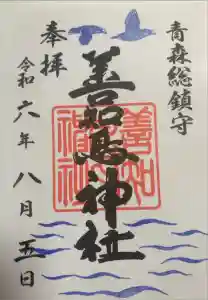 青森総鎮守
善知鳥神社
奉拝
令和六年八月五日
善知
鳥
神社